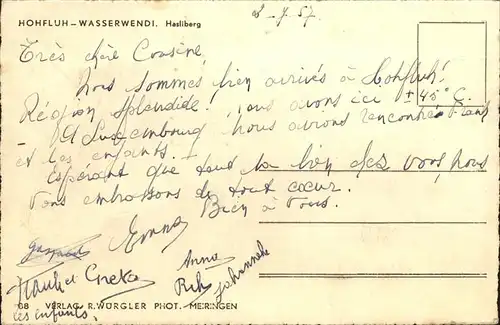 HOHFLUH–WASSERWENDI. Hasliberg
8-7-57
Très chère Cousine,
Nous sommes bien arrivés à Hohfluh!
Région splendide! Nous avons ici + 45° C.
- A Luxembourg nous avons rencontré
et les enfants. -
Espérant que tout va bien chez vous, nous
vous embrassons de tout cœur.
Bien à vous.
Emma
Anna
Greta
Rik
Johanneke
les enfants.
68 VERLAG R. WÜRGLER PHOT. MEIRINGEN